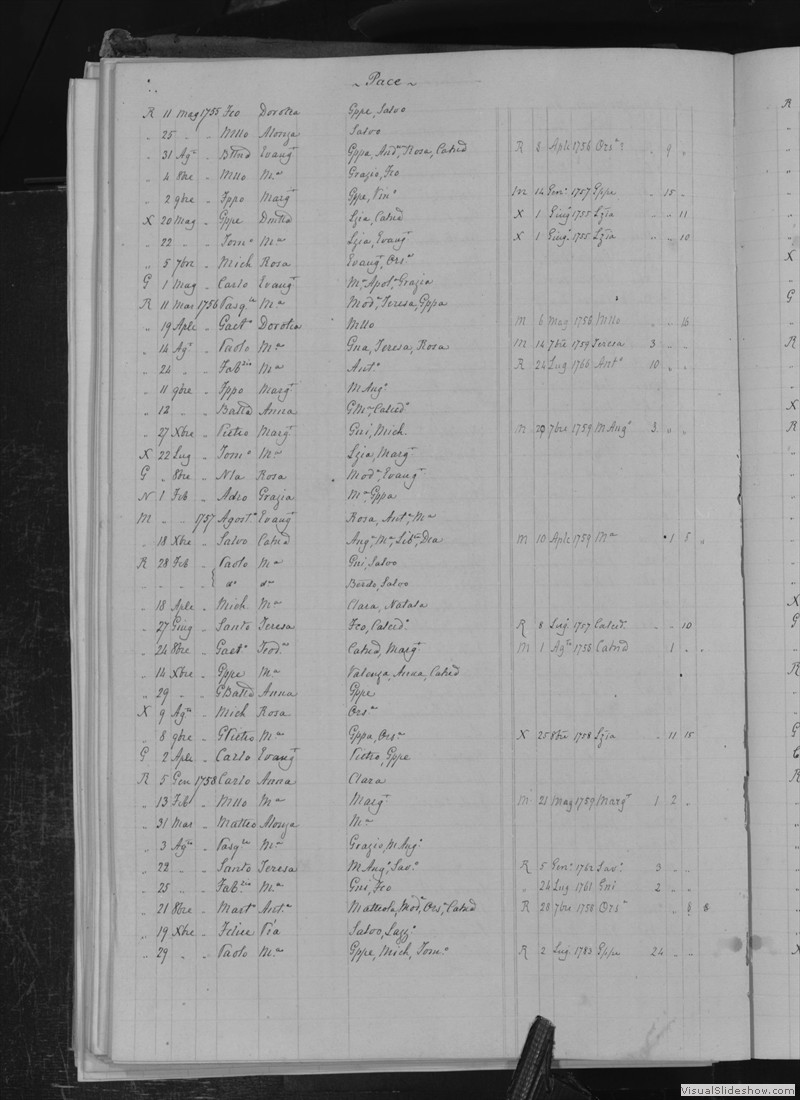 ~ Pace ~
R 11 Mag 1755 Fco Dorotea Gppe, Salvo
" 25 " " Mllo Alonza Salvo
" 31 Agto " Bttnd Evangta Gppa, Anda, Rosa, Catnd R 2 Aple 1756 Orsa " 9 "
" 4 8bre " Mllo Ma Grazio, Fco
" 2 9bre " Fppo Margta Gppe, Vino M 14 Geno 1757 Gppe " 15 "
X 20 Mag " Gppe Dmtta Lzia, Catnd X 1 Giugo 1755 Lzia " " 11
" 22 " " Toma Ma Lzia, Evangta X 1 Giugo 1755 Lzia " " 10
" 5 7bre " Mich Rosa Evangta, Orsa
G 1 Mag " Carlo Evangta Ma, Apola, Grazia
R 11 Mar 1756 Pasqle Ma Moda, Teresa, Gppa
" 19 Aple " Gaeta Dorotea Mllo M 6 Mag 1756 Mllo " " 16
" 14 Agto " Paolo Ma Gna, Teresa, Rosa M 14 7bre 1759 Teresa 3 " "
" 24 " " Fabzio Ma Anta R 24 Lug 1766 Anta 10 " "
" 11 9bre " Fppo Margta M Anga
" 12 " " Batta Anna GMa, Calcedo
" 27 Xbre " Pietro Margta Gni, Mich M 29 7bre 1759 M Anga 3 " "
X 22 Lug " Toma Ma Lzia, Margta
G " 8bre " Nla Rosa Moda, Evangta
N 1 Feb " Adeo Grazia Ma, Gppa
M " " 1757 Agosta Evangta Rosa, Anta, Ma
" 18 Xbre " Salvo Catnd Anga, Ma, Liba, Dea M 10 Aple 1759 Ma 1 5 "
R 28 Feb " Paolo Ma Gni, Salvo
" " " " do do Bendo, Salvo
" 18 Aple " Mich Ma Clara, Natala
" 27 Giug " Santo Teresa Fco, Calcedo R 8 Lug 1757 Calcedo " " 10
" 24 8bre " Gaeto Teoda Catnd, Margta M 1 Agto 1758 Catnd 1 " "
" 14 Xbre " Gppe Ma Valenza, Anna, Catnd
" 29 " " GBatta Anna Gppe
X 9 Agto " Mich Rosa Orsa
" 8 9bre " GPietro Ma Gppa, Orsa X 25 8bre 1758 Lzia " 11 15
G 2 Aple " Carlo Evangta Pietro, Gppe
R 5 Gen 1758 Carlo Anna Clara
" 13 Feb " Mllo Ma Margta M 21 Mag 1759 Margta 1 2 "
" 31 Mar " Matteo Alonza Ma
" 3 Agto " Pasqle Ma Grazio, M Anga
" 22 " " Santo Teresa M Anga, Savo R 5 Geno 1762 Savo 3 " "
" 25 " " Fabzio Ma Gni, Fco " 24 Lug 1761 Gni 2 " "
" 21 8bre " Marto Anta Matteola, Moda, Orsa, Catnd R 28 7bre 1758 Orsa " 8 8
" 19 Xbre " Felice Pia Salvo, Lazzo
" 29 " " Paolo Ma Gppe, Mich, Toma R 2 Lug 1783 Gppe 24 " "
VisualSlideshow.com